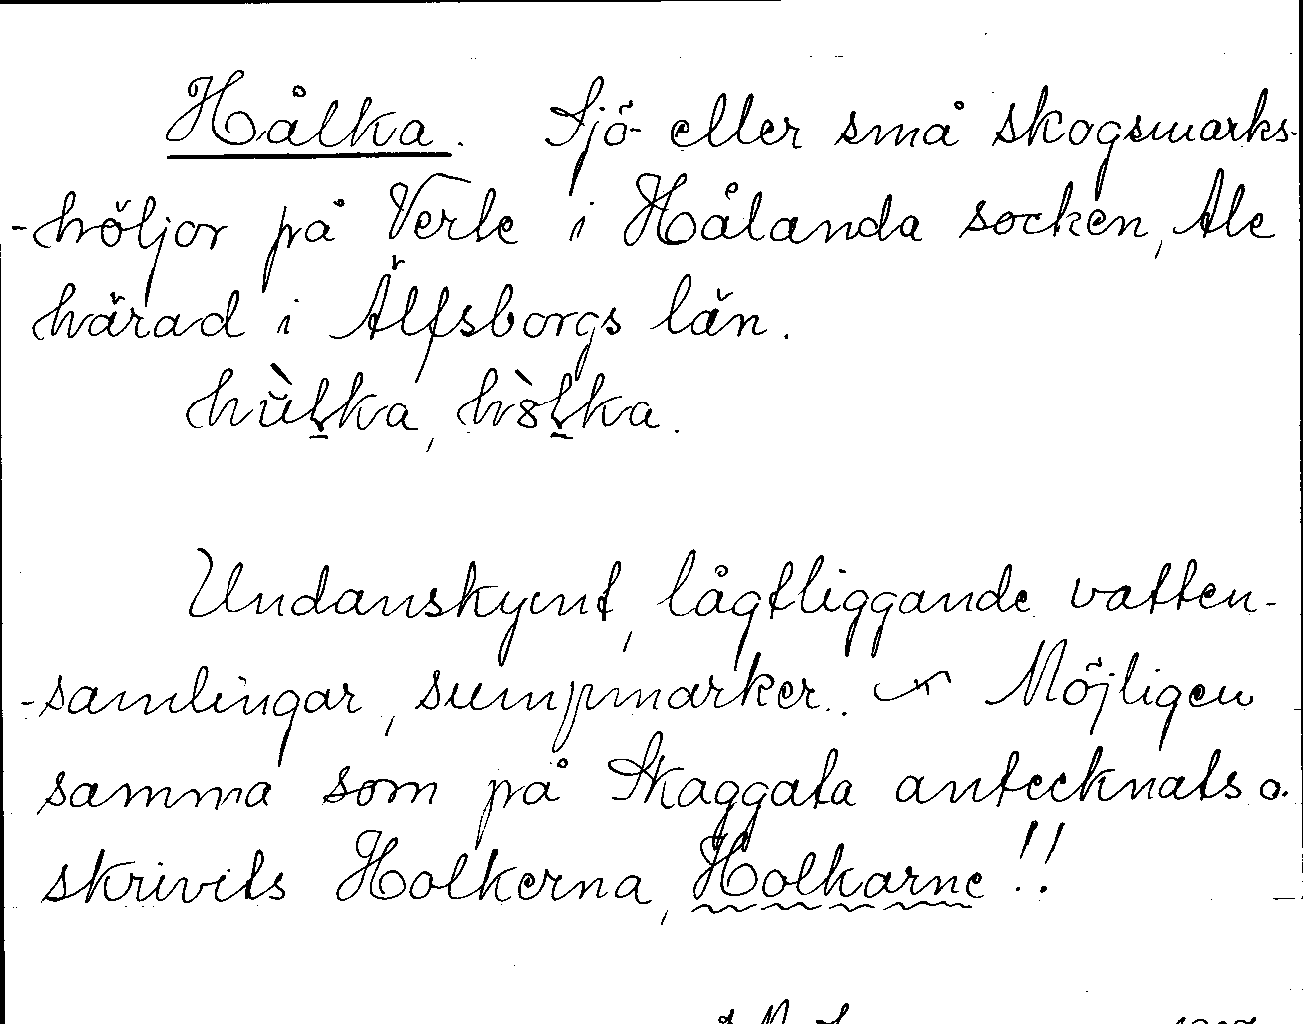 Hålka. Sjö- eller små skogsmarks-
-höljor på Verle i Hålanda socken, Ale
härad i Älfsborgs län.
hùḷka, hòḷka.
Undanskymt, lågtliggande vatten-
-samlingar, sumpmarker. Möjligen
samma som på Skaggata antecknats o.
skrivits Holkerna, Holkarne!!